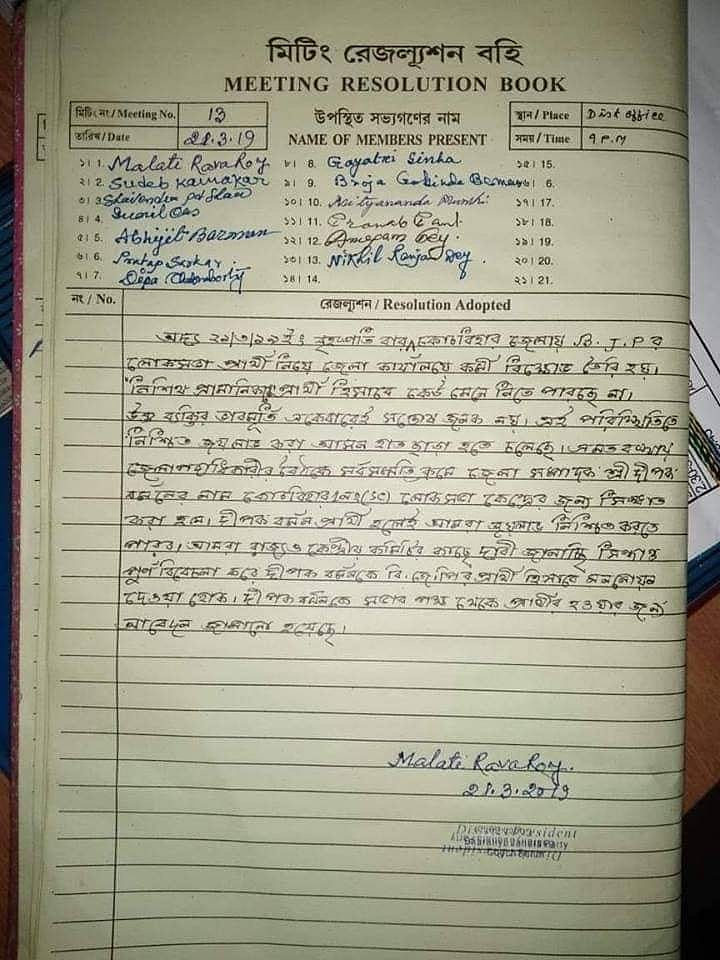 মিটিং রেজল্যুশন বহি
MEETING RESOLUTION BOOK
মিটিং নং / Meeting No. 13
তারিখ / Date 21.3.19
উপস্থিত সভ্যগণের নাম
NAME OF MEMBERS PRESENT
স্থান / Place Dist office
সময় / Time 9 P.M
১। 1. Malati Rava Roy
২। 2. Sudeb Karmakar
৩। 3. Shailendra
৪। 4. Sunil Das
৫। 5. Abhijit Barman
৬। 6. Pratap Sarkar
৭। 7. Dipa Chakraborty
৮। 8. Gayatri Sinha
৯। 9. Broja Gobinda Barman
১০। 10. Nityananda Munshi
১১। 11.
১২। 12. Anupam Dey.
১৩। 13. Nikhil Ranjan Dey.
১৪। 14.
১৫। 15.
১৬। 6.
১৭। 17.
১৮। 18.
১৯। 19.
২০। 20.
২১। 21.
নং / No.
রেজল্যুশন / Resolution Adopted
অদ্য ২১/৩/১৯ইং বৃহস্পতি বার কোচবিহার জেলায় B.J.P র
লোকসভা প্রার্থী নিয়ে জেলা কার্যালয়ে কর্মী বিক্ষোভ তৈরি হয়।
নিশিথ প্রামানিককে প্রার্থী হিসাবে কেউ মেনে নিতে পারছে না।
উক্ত ব্যক্তির ভাবমূর্তি একেবারেই সন্তোষ জনক নয়। এই পরিস্থিতিতে
নিশ্চিত জয়লাভ করা আসন হাত ছাড়া হতে চলেছে। এমতবস্থায়
জেলা পদাধিকারীর বৈঠকে সর্বসম্মতি ক্রমে জেলা সম্পাদক শ্রী দীপক
বর্মনের নাম কোচবিহার 1নং(SC) লোকসভা কেন্দ্রের জন্য সিদ্ধান্ত
করা হল। দীপক বর্মন প্রার্থী হলেই আমরা জয়লাভ নিশ্চিত করতে
পারব। আমরা রাজ্য ও কেন্দ্রীয় কমিটির কাছে দাবী জানাচ্ছি সিদ্ধান্ত
পূর্ণ বিবেচনা করে দীপক বর্মনকে বি.জে.পির প্রার্থী হিসাবে মনোনয়ন
দেওয়া হোক। দীপক বর্মনকে সবার পক্ষ থেকে প্রার্থীর হওয়ার জন্য
আবেদন জানানো হয়েছে।
Malati Rava Roy.
21.3.2019
District President